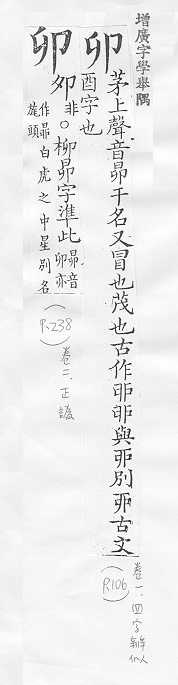 增廣字學舉隅
卯 茅上聲音昴干名又冒也茂也古作戼戼與丣別丣古文
酉字也
卯 夘非○柳昴字準此昴音卯亦
作昴白虎之中星別名
旄頭
卷一.四字辨似
(P.106)
卷二.正譌
(P.238)